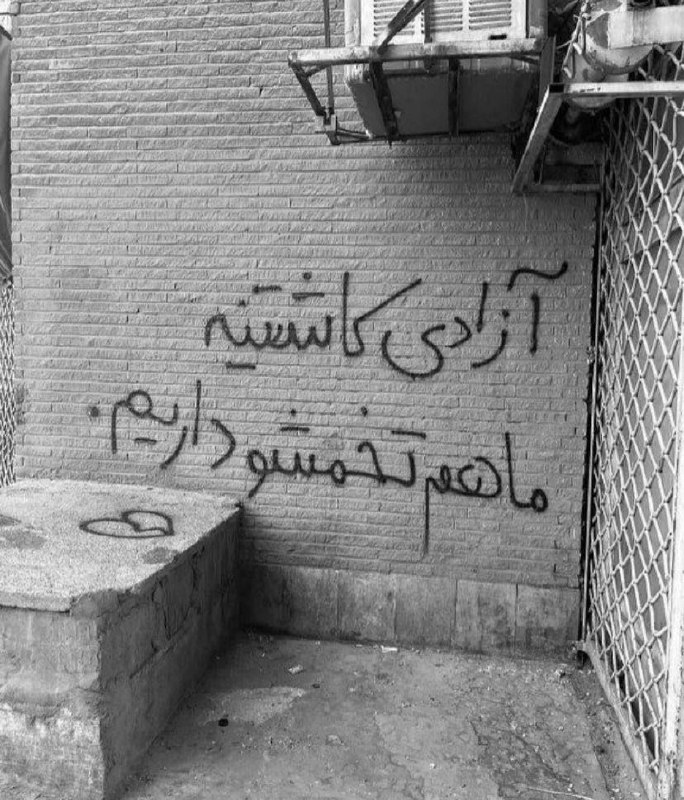 آزادی کاشتنیه
ما هم تخمشو داریم.